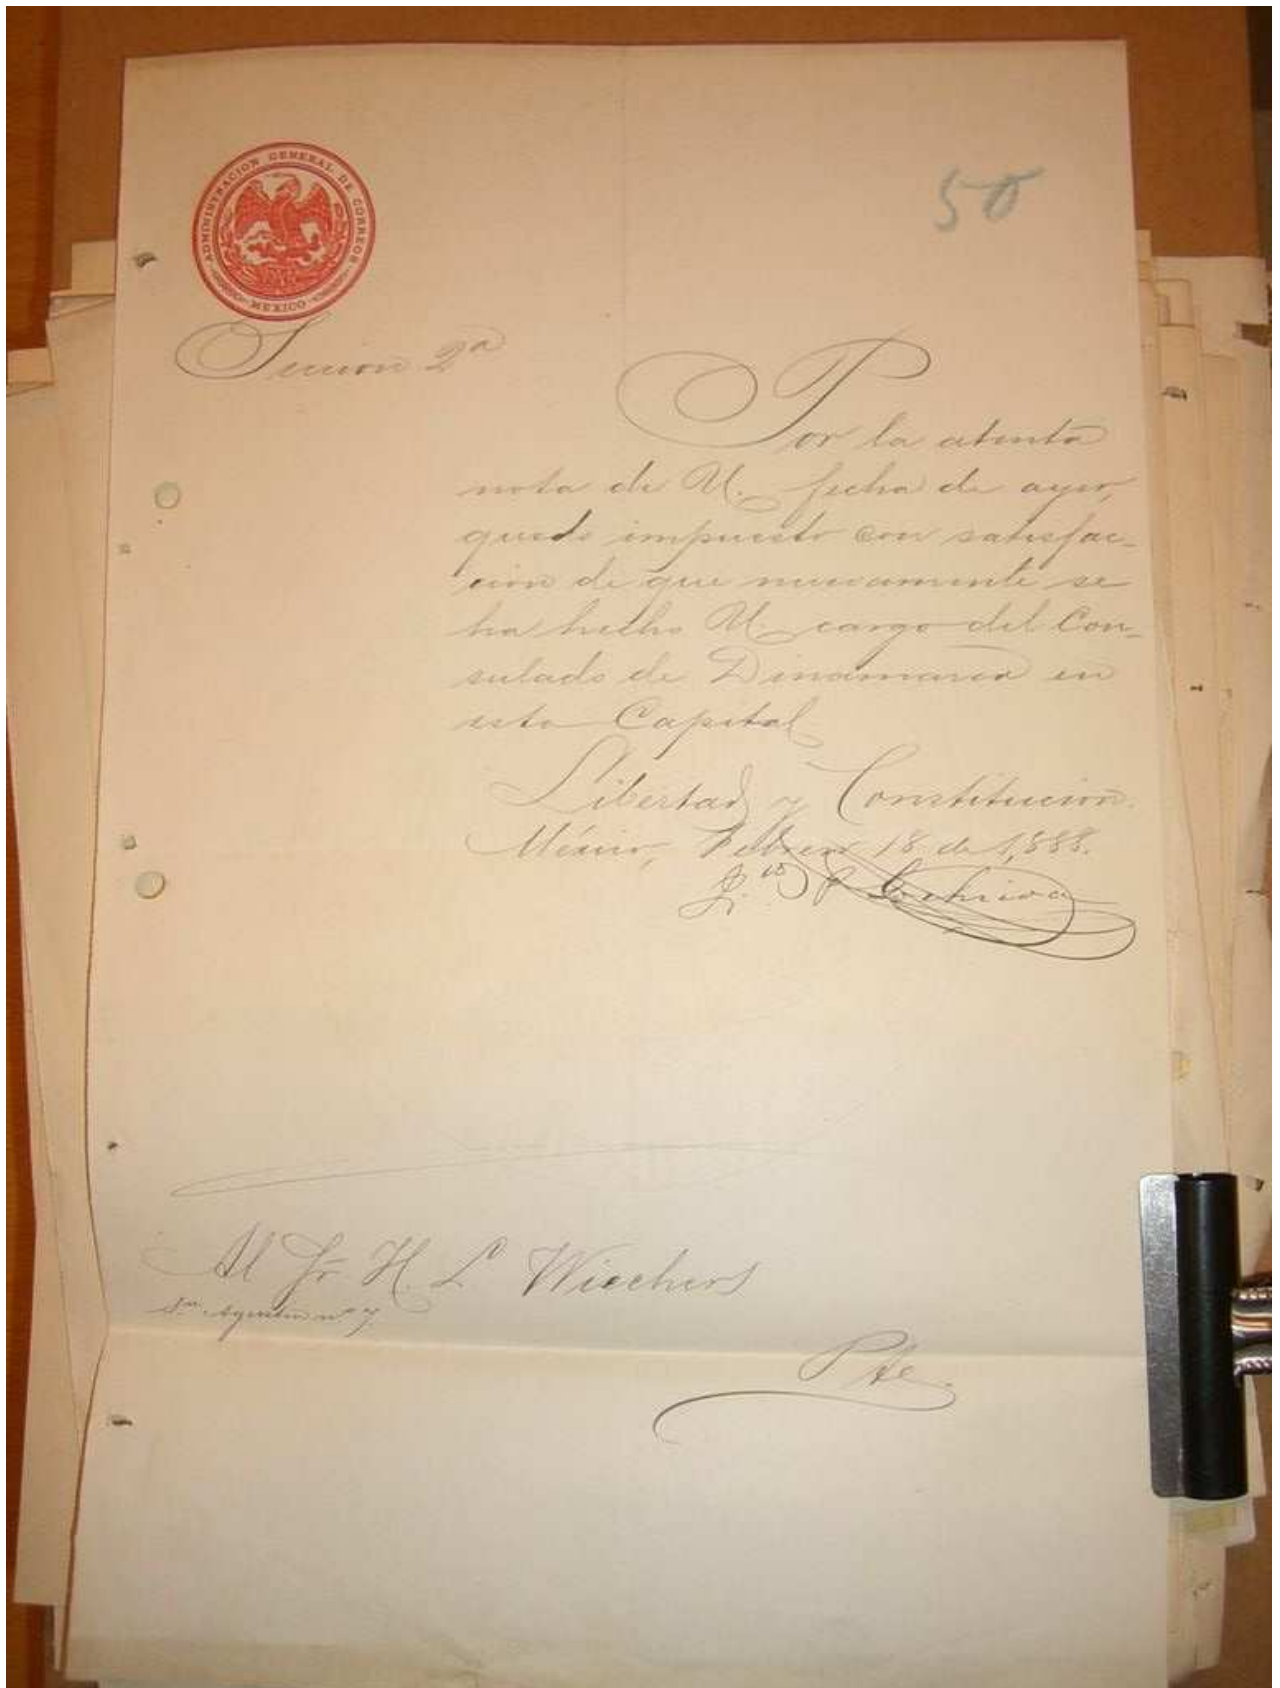 ADMINISTRACION GENERAL DE CORREOS
MEXICO
50
Seccion 2ª
Por la atenta
nota de U. fecha de ayer,
quedo impuesto con satisfac-
cion de que nuevamente se
ha hecho U. cargo del Con-
sulado de Dinamarca en
esta Capital
Libertad y Constitucion.
México, Febrero 18 de 1,888.
Al Sr H. C. Wiechers
Sn. Agustin nº 7.
Pte.